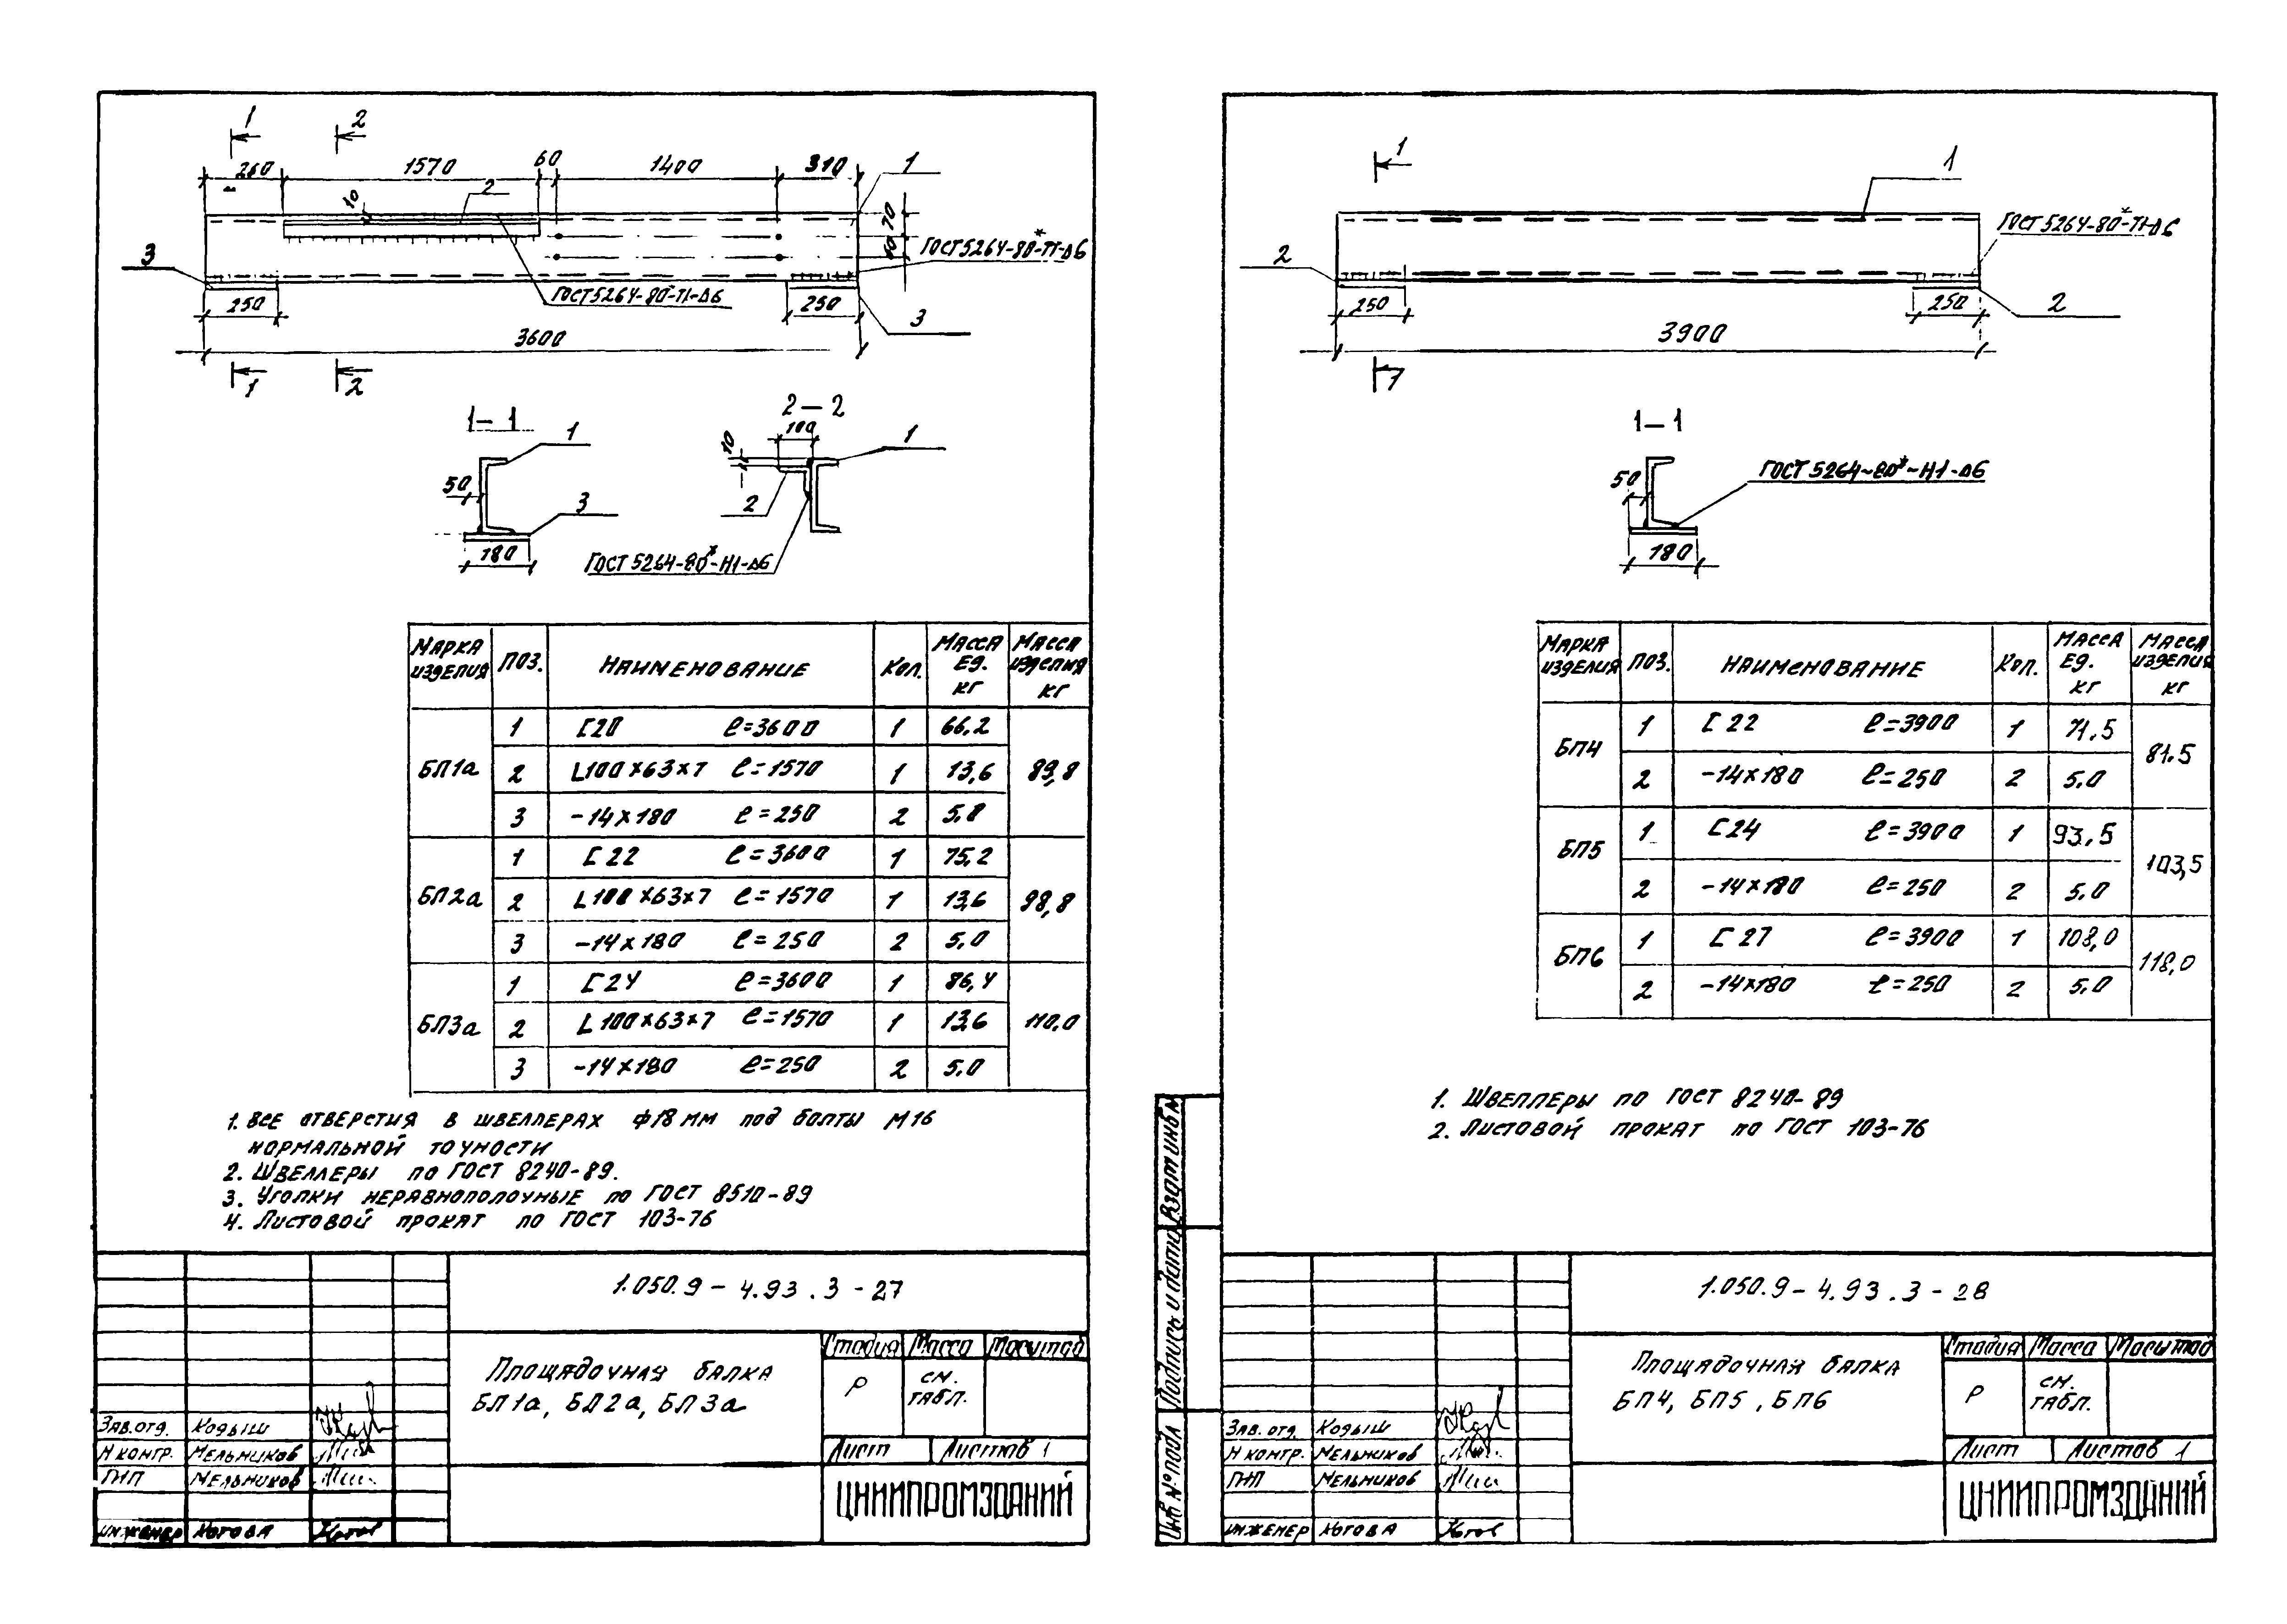 1 2
260 1570 60 1400 310 1
10 2
70
60
ГОСТ 5264-80*-Т1-Δ6
3
ГОСТ 5264-80*-Т1-Δ6
250 250 3
3600
1 2
1-1 2-2
1 50 3 180
10 100 1 2
ГОСТ 5264-80*-Н1-Δ6
МАРКА ИЗДЕЛИЯ ПОЗ. НАИМЕНОВАНИЕ КОЛ. МАССА ЕД. КГ МАССА ИЗДЕЛИЯ КГ
БП1а 1 [20 ℓ=3600 1 66,2 89,8
2 L100×63×7 ℓ=1570 1 13,6
3 -14×180 ℓ=250 2 5,0
БП2а 1 [22 ℓ=3600 1 75,2 98,8
2 L100×63×7 ℓ=1570 1 13,6
3 -14×180 ℓ=250 2 5,0
БП3а 1 [24 ℓ=3600 1 86,4 110,0
2 L100×63×7 ℓ=1570 1 13,6
3 -14×180 ℓ=250 2 5,0
1. ВСЕ ОТВЕРСТИЯ В ШВЕЛЛЕРАХ ф18 ММ ПОД БОЛТЫ М16
НОРМАЛЬНОЙ ТОЧНОСТИ
2. ШВЕЛЛЕРЫ ПО ГОСТ 8240-89.
3. УГОЛКИ НЕРАВНОПОЛОЧНЫЕ ПО ГОСТ 8510-89
4. ЛИСТОВОЙ ПРОКАТ ПО ГОСТ 103-76
1.050.9-4.93.3-27
ПЛОЩАДОЧНАЯ БАЛКА
БП1а, БП2а, БП3а
Стадия Масса Масштаб
Р СМ. ТАБЛ.
Лист Листов 1
ЦНИИПРОМЗДАНИЙ
ЗАВ. ОТД. КОДЫШ
Н КОНТР. МЕЛЬНИКОВ
ГИП МЕЛЬНИКОВ
ИНЖЕНЕР КОТОВА
1 1
ГОСТ 5264-80*-Т1-Δ6
2
250 250 2
3900
1
1-1
50
ГОСТ 5264-80*-Н1-Δ6
180
МАРКА ИЗДЕЛИЯ ПОЗ. НАИМЕНОВАНИЕ КОЛ. МАССА ЕД. КГ МАССА ИЗДЕЛИЯ КГ
БП4 1 [22 ℓ=3900 1 71.5 81.5
2 -14×180 ℓ=250 2 5.0
БП5 1 [24 ℓ=3900 1 93,5 103,5
2 -14×180 ℓ=250 2 5.0
БП6 1 [27 ℓ=3900 1 108,0 118,0
2 -14×180 ℓ=250 2 5.0
1. ШВЕЛЛЕРЫ ПО ГОСТ 8240-89
2. ЛИСТОВОЙ ПРОКАТ ПО ГОСТ 103-76
Взам инв №
Подпись и дата
Инв № подл
1.050.9-4.93.3-28
ПЛОЩАДОЧНАЯ БАЛКА
БП4, БП5, БП6
Стадия Масса Масштаб
Р СМ. ТАБЛ.
Лист Листов 1
ЦНИИПРОМЗДАНИЙ
ЗАВ. ОТД. КОДЫШ
Н КОНТР. МЕЛЬНИКОВ
ГИП МЕЛЬНИКОВ
ИНЖЕНЕР КОТОВА